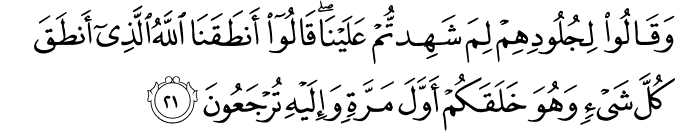 وَقَالُوا۟ لِجُلُودِهِمْ لِمَ شَهِدتُّمْ عَلَيْنَا ۖ قَالُوٓا۟ أَنطَقَنَا ٱللَّهُ ٱلَّذِىٓ أَنطَقَ
كُلَّ شَىْءٍ وَهُوَ خَلَقَكُمْ أَوَّلَ مَرَّةٍ وَإِلَيْهِ تُرْجَعُونَ ٢١